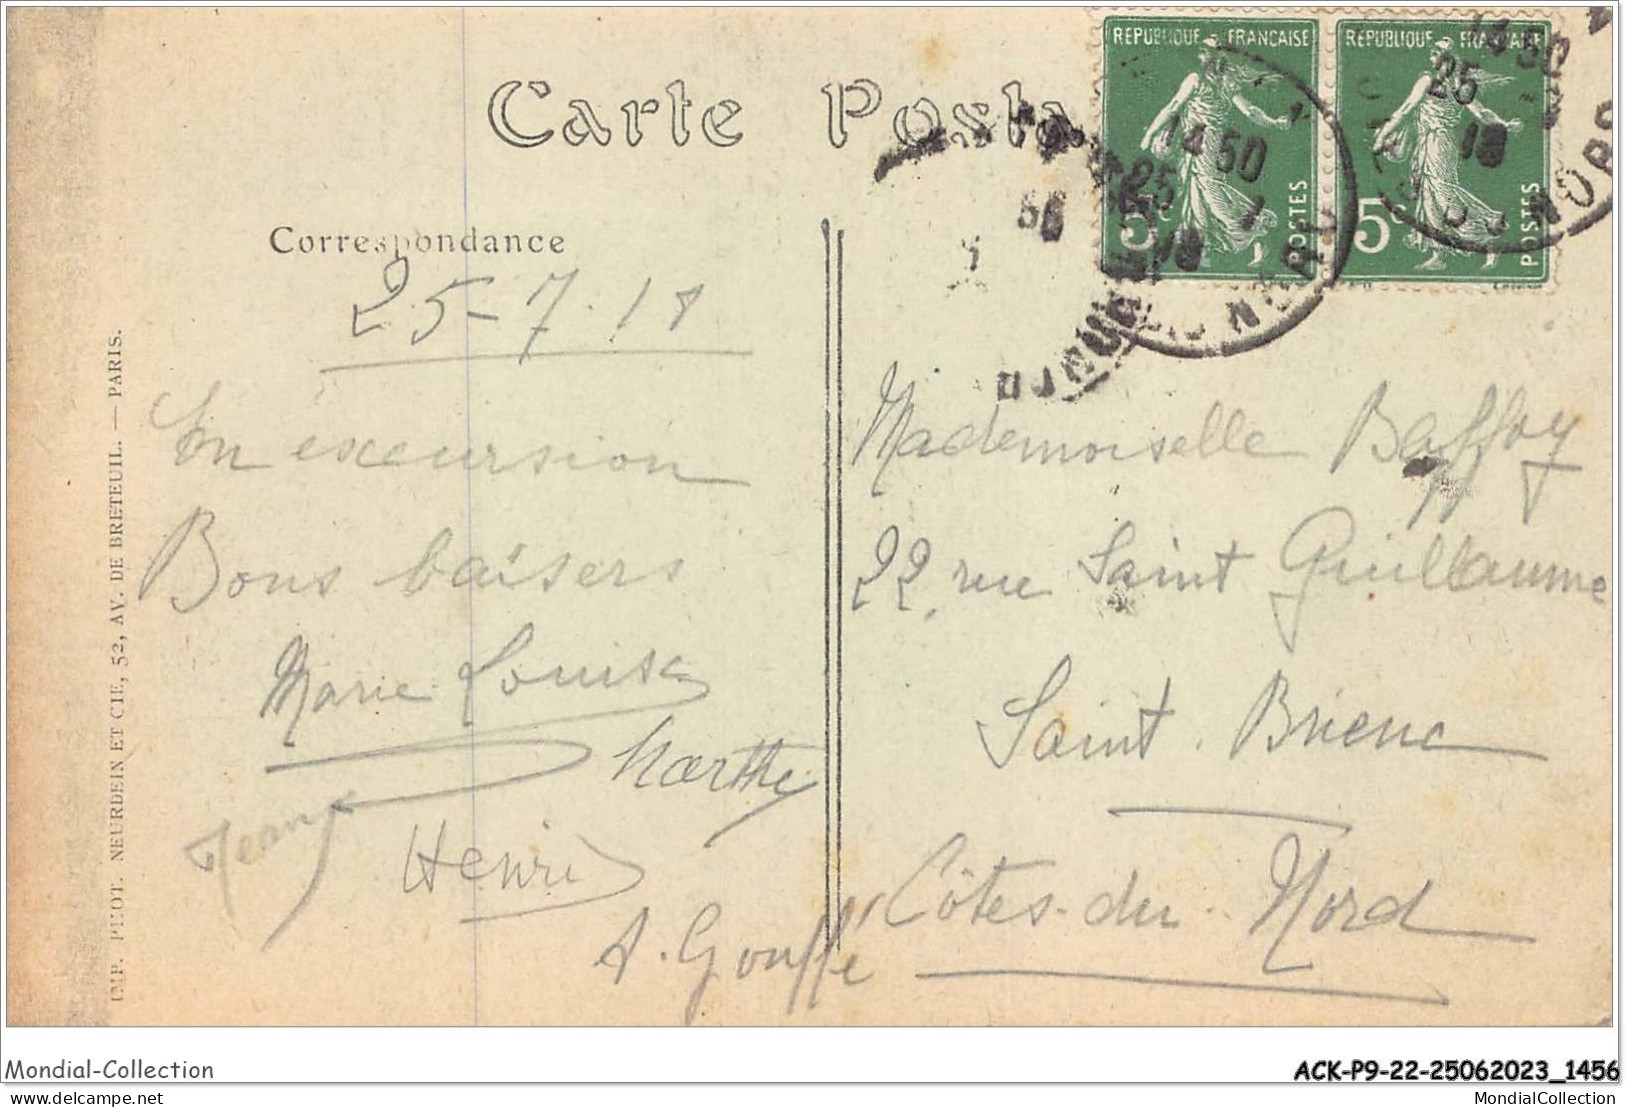 Carte Posta
RÉPUBLIQUE FRANÇAISE
RÉPUBLIQUE FRANÇAISE
5c POSTES
5c POSTES
14 50
25
18
14 50
25 7
18
DU NORD
Correspondance
25-7.18
En excursion
Bons baisers
Marie Louise
Marthe
Jean
Henri
A. Gouffé
Mademoiselle Baffoy
22, rue Saint Guillaume
Saint. Brieuc
Côtes-du-Nord
IMP. PHOT. NEURDEIN ET CIE, 52, AV. DE BRETEUIL. — PARIS.
Mondial-Collection
ACK-P9-22-25062023_1456
delcampe.net
MondialCollection